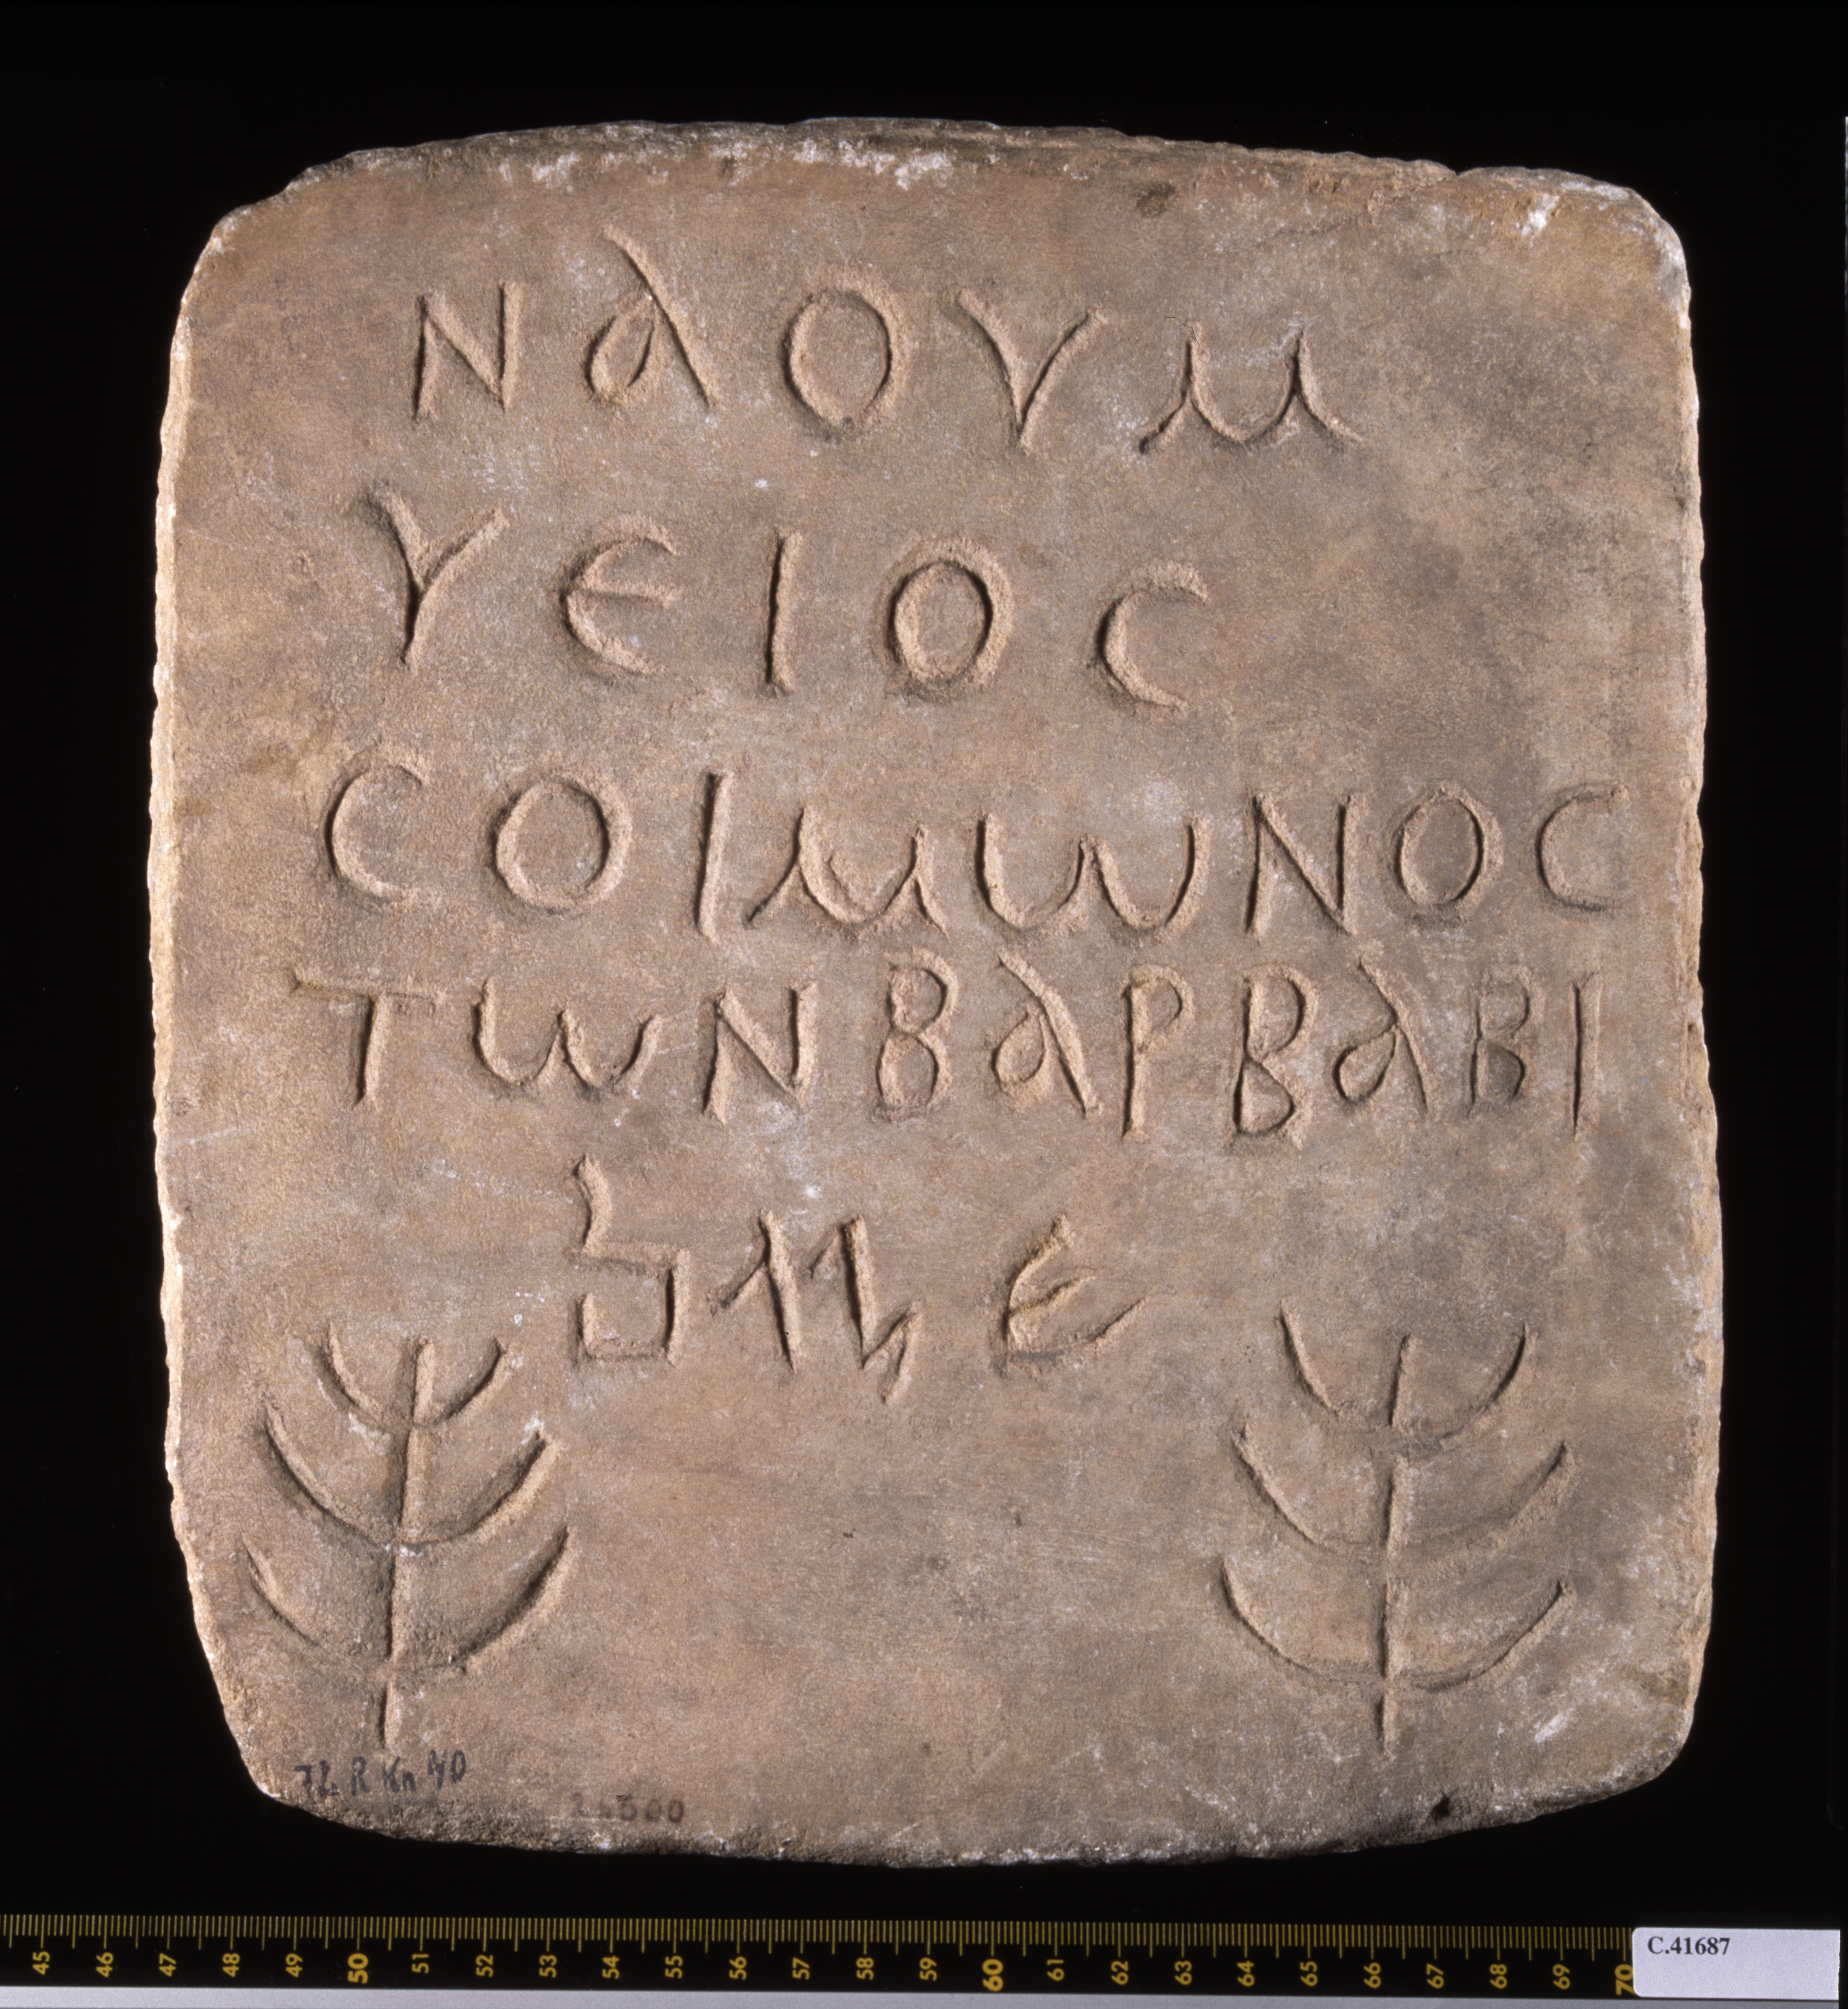 ΝΑΟΥΜ
ΥΕΙΟC
CΟΙΜΩΝΟC
ΤΩΝΒΑΡΒΑΒΙ
שלום
45 46 47 48 49 50 51 52 53 54 55 56 57 58 59 60 61 62 63 64 65 66 67 68 69 70
C.41687